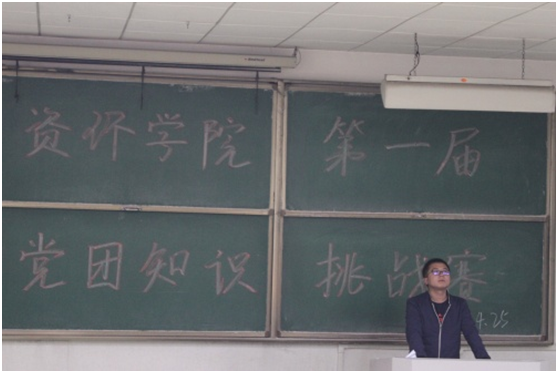 资环学院 第一届
党团知识 挑战赛
4.25